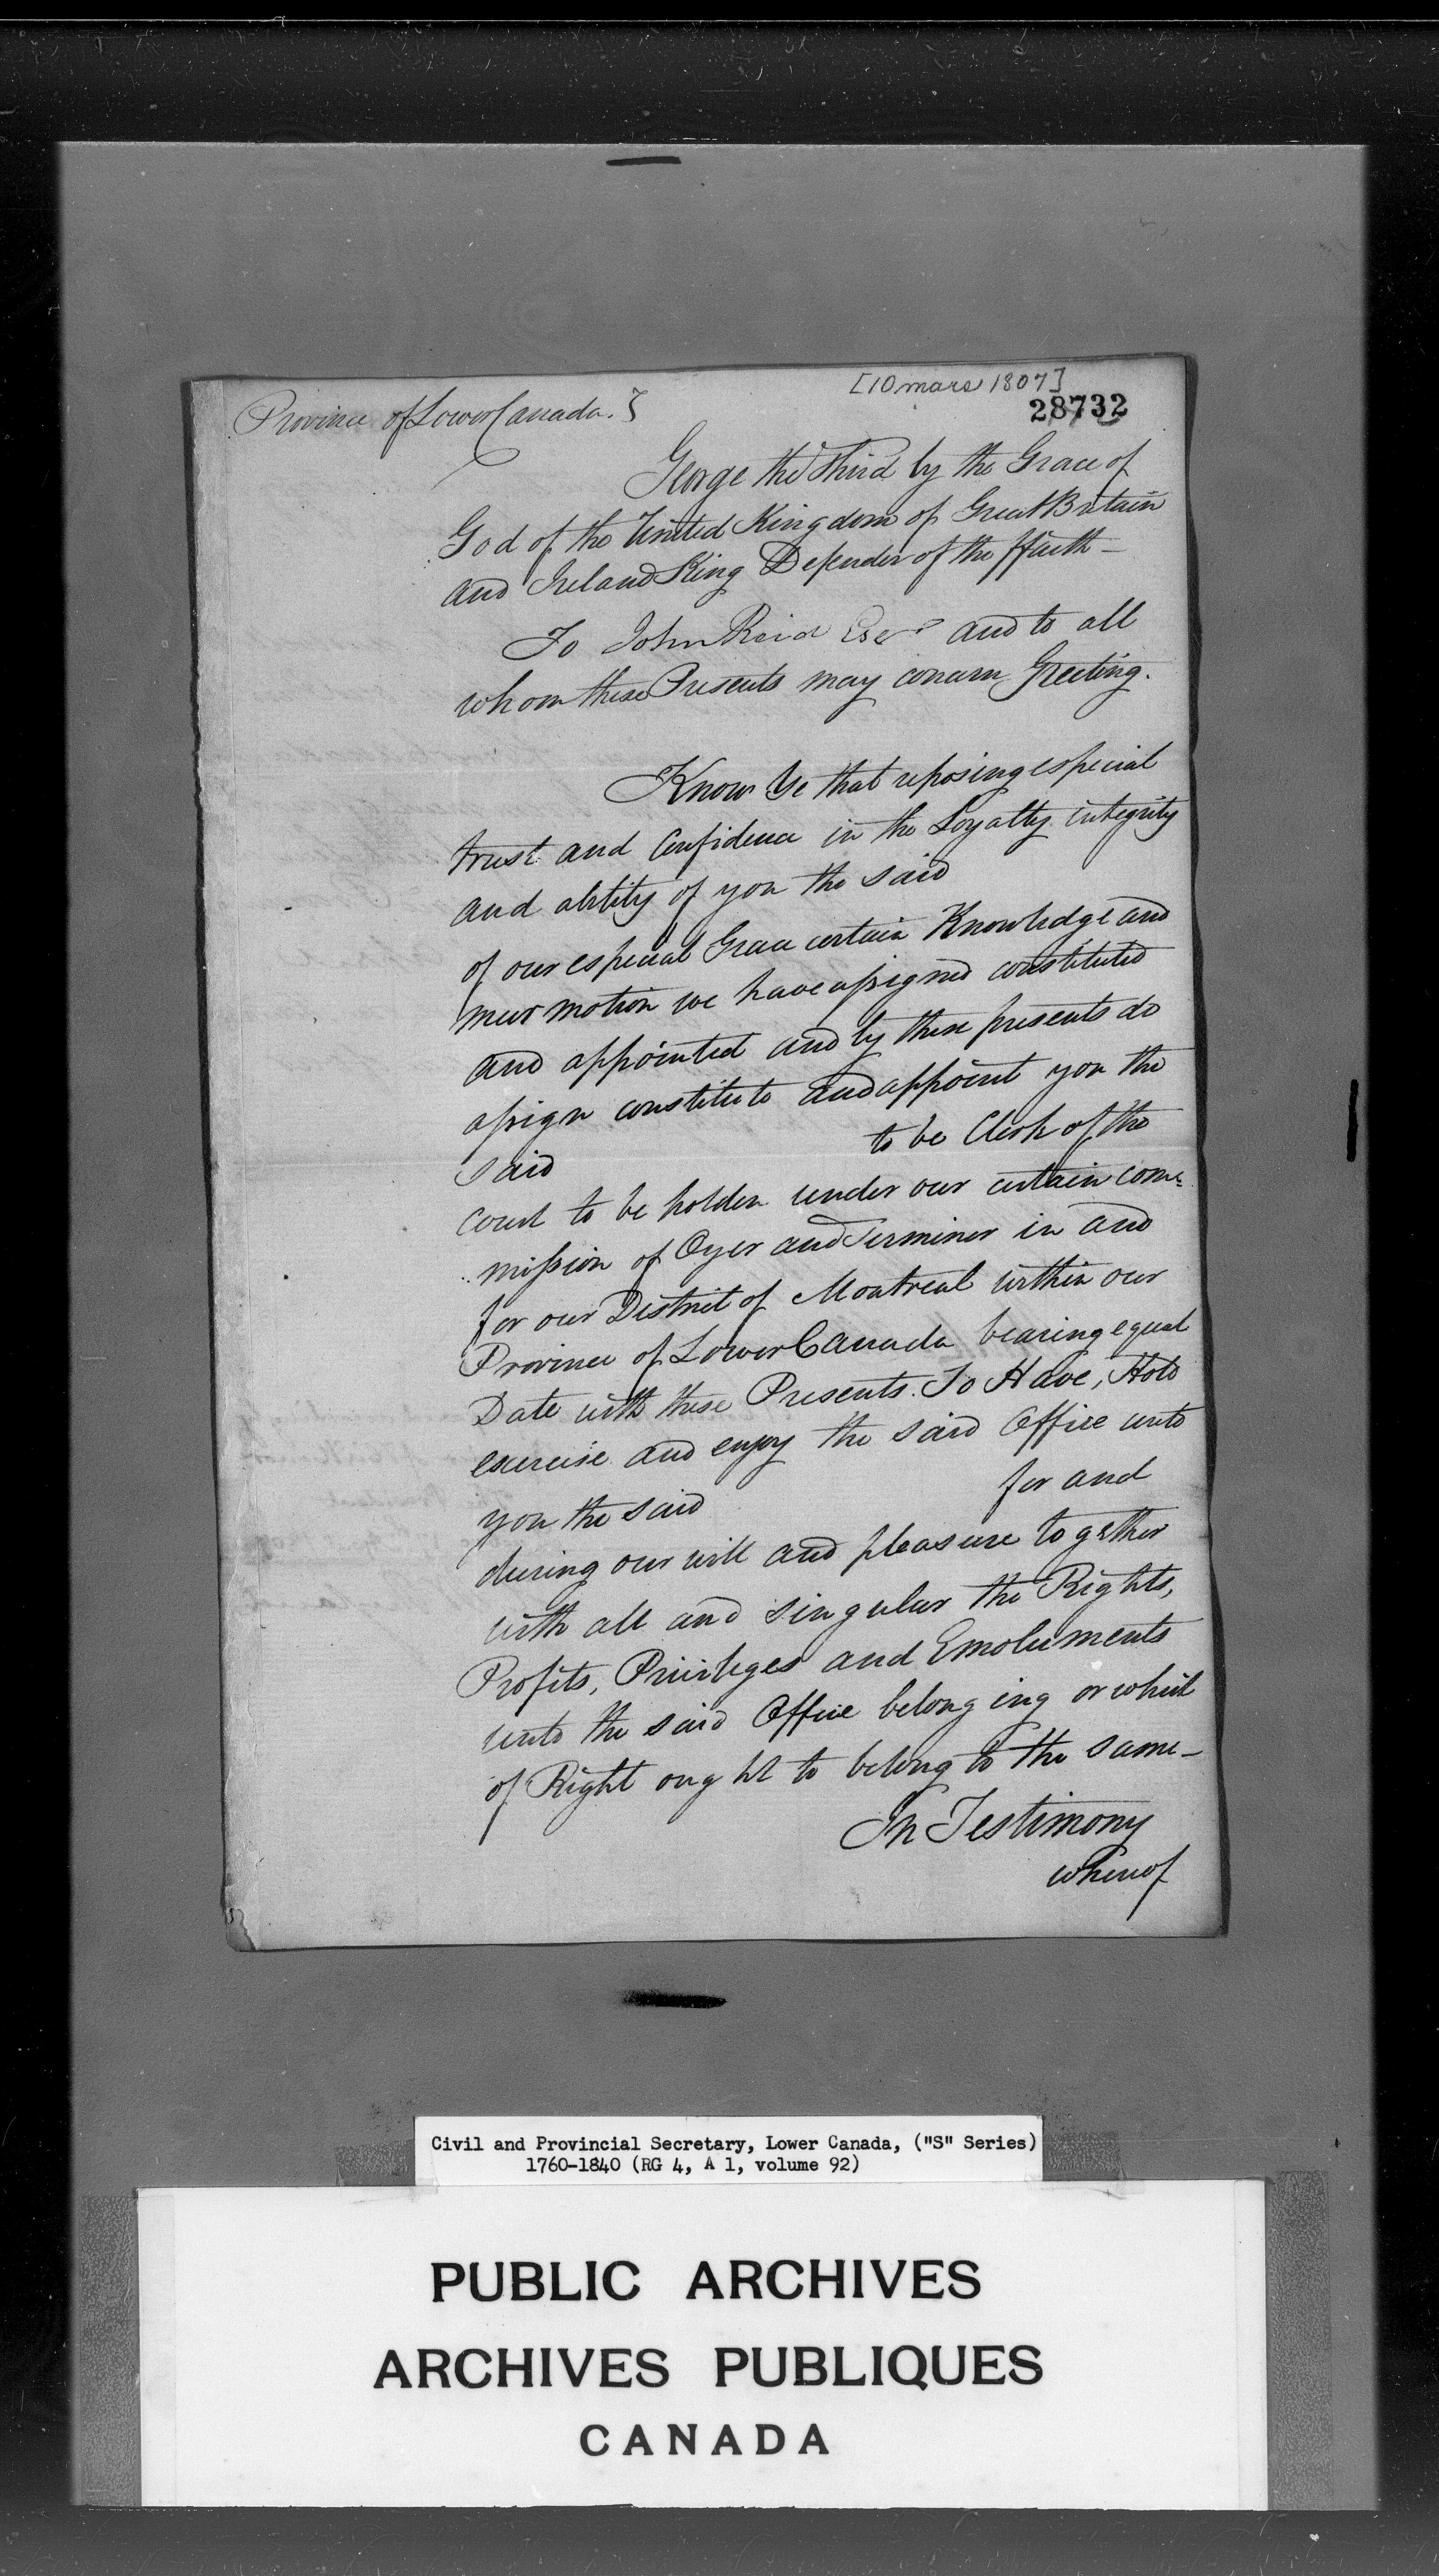 [10 mars 1807]
28732
Province of Lower Canada. }
George the Third by the Grace of
God of the United Kingdom of Great Britain
and Ireland King Defender of the ffaith –
To John Reid Esqr and to all
whom these Presents may concern Greeting.
Know Ye that reposing especial
trust and Confidence in the Loyalty integrity
and ability of you the said
of our especial Grace certain Knowledge and
meer motion we have assigned constituted
and appointed and by these presents do
assign constitute and appoint you the
said to be Clerk of the
court to be holden under our certain com=
mission of Oyer and Terminer in and
for our District of Montreal within our
Province of Lower Canada bearing equal
Date with these Presents. To Have, Hold
exercise and enjoy the said Office unto
you the said for and
during our will and pleasure together
with all and singular the Rights,
Profits, Privileges and Emoluments
unto the said Office belonging or which
of Right ought to belong to the same –
In Testimony
whereof
Civil and Provincial Secretary, Lower Canada, ("S" Series)
1760-1840 (RG 4, A 1, volume 92)
PUBLIC ARCHIVES
ARCHIVES PUBLIQUES
CANADA